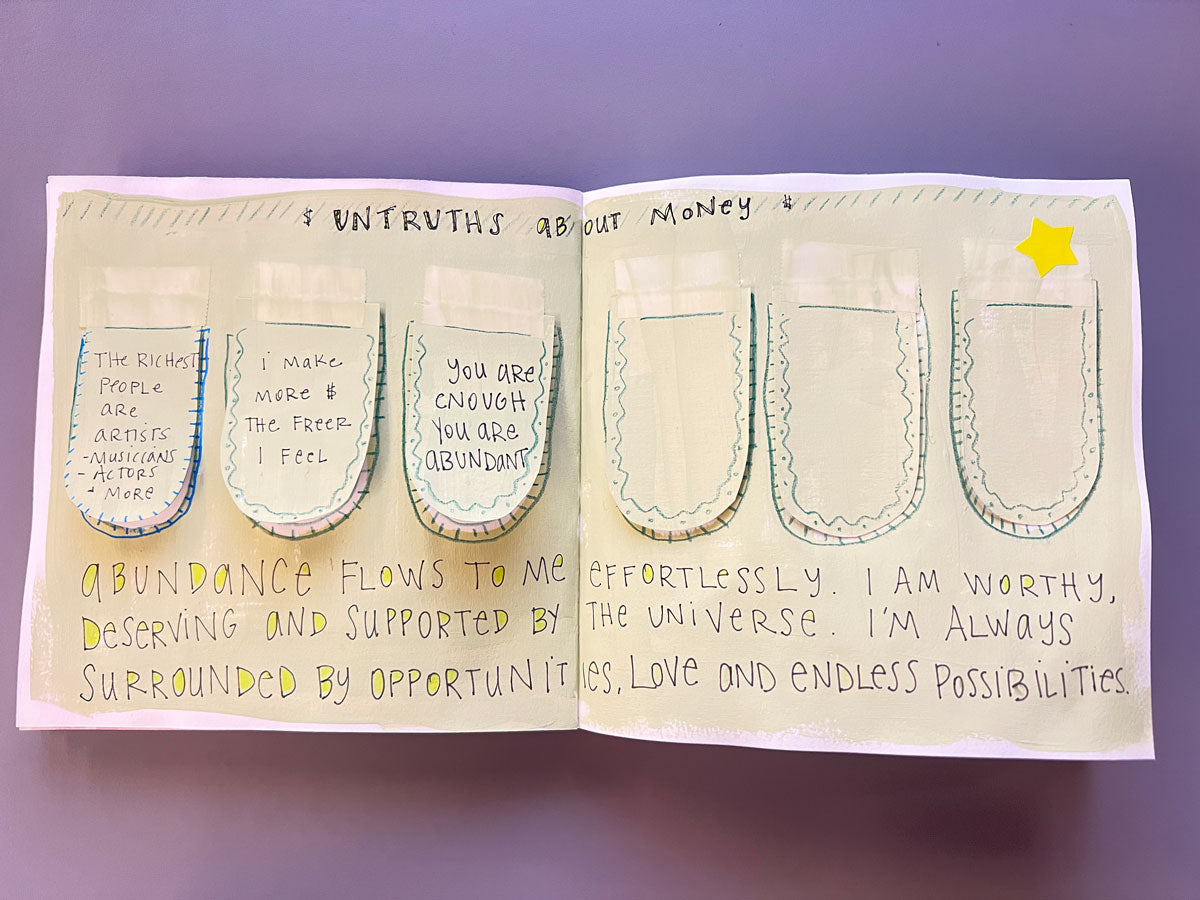 $ UNTRUTHS aBOUT MONey $
THE RICHEST
PEOPLe
aRe
aRTISTS
-MUSICIANS
- ACTORS
+ MORE
i MaKe
MORE $
THE FREER
I FeeL
YOU aRe
eNOUGH
YOU aRe
aBUNDANT
aBUNDaNCe FLOWS TO Me eFFORTLESSLY. I AM WORTHY,
DeSeRViNG aND SUPPORTeD BY THe UNiVeRSe. I'M ALWAYS
SURROUNDeD BY OPPORTUNITIES, LOVe aND eNDLeSS POSSiBiLiTieS.